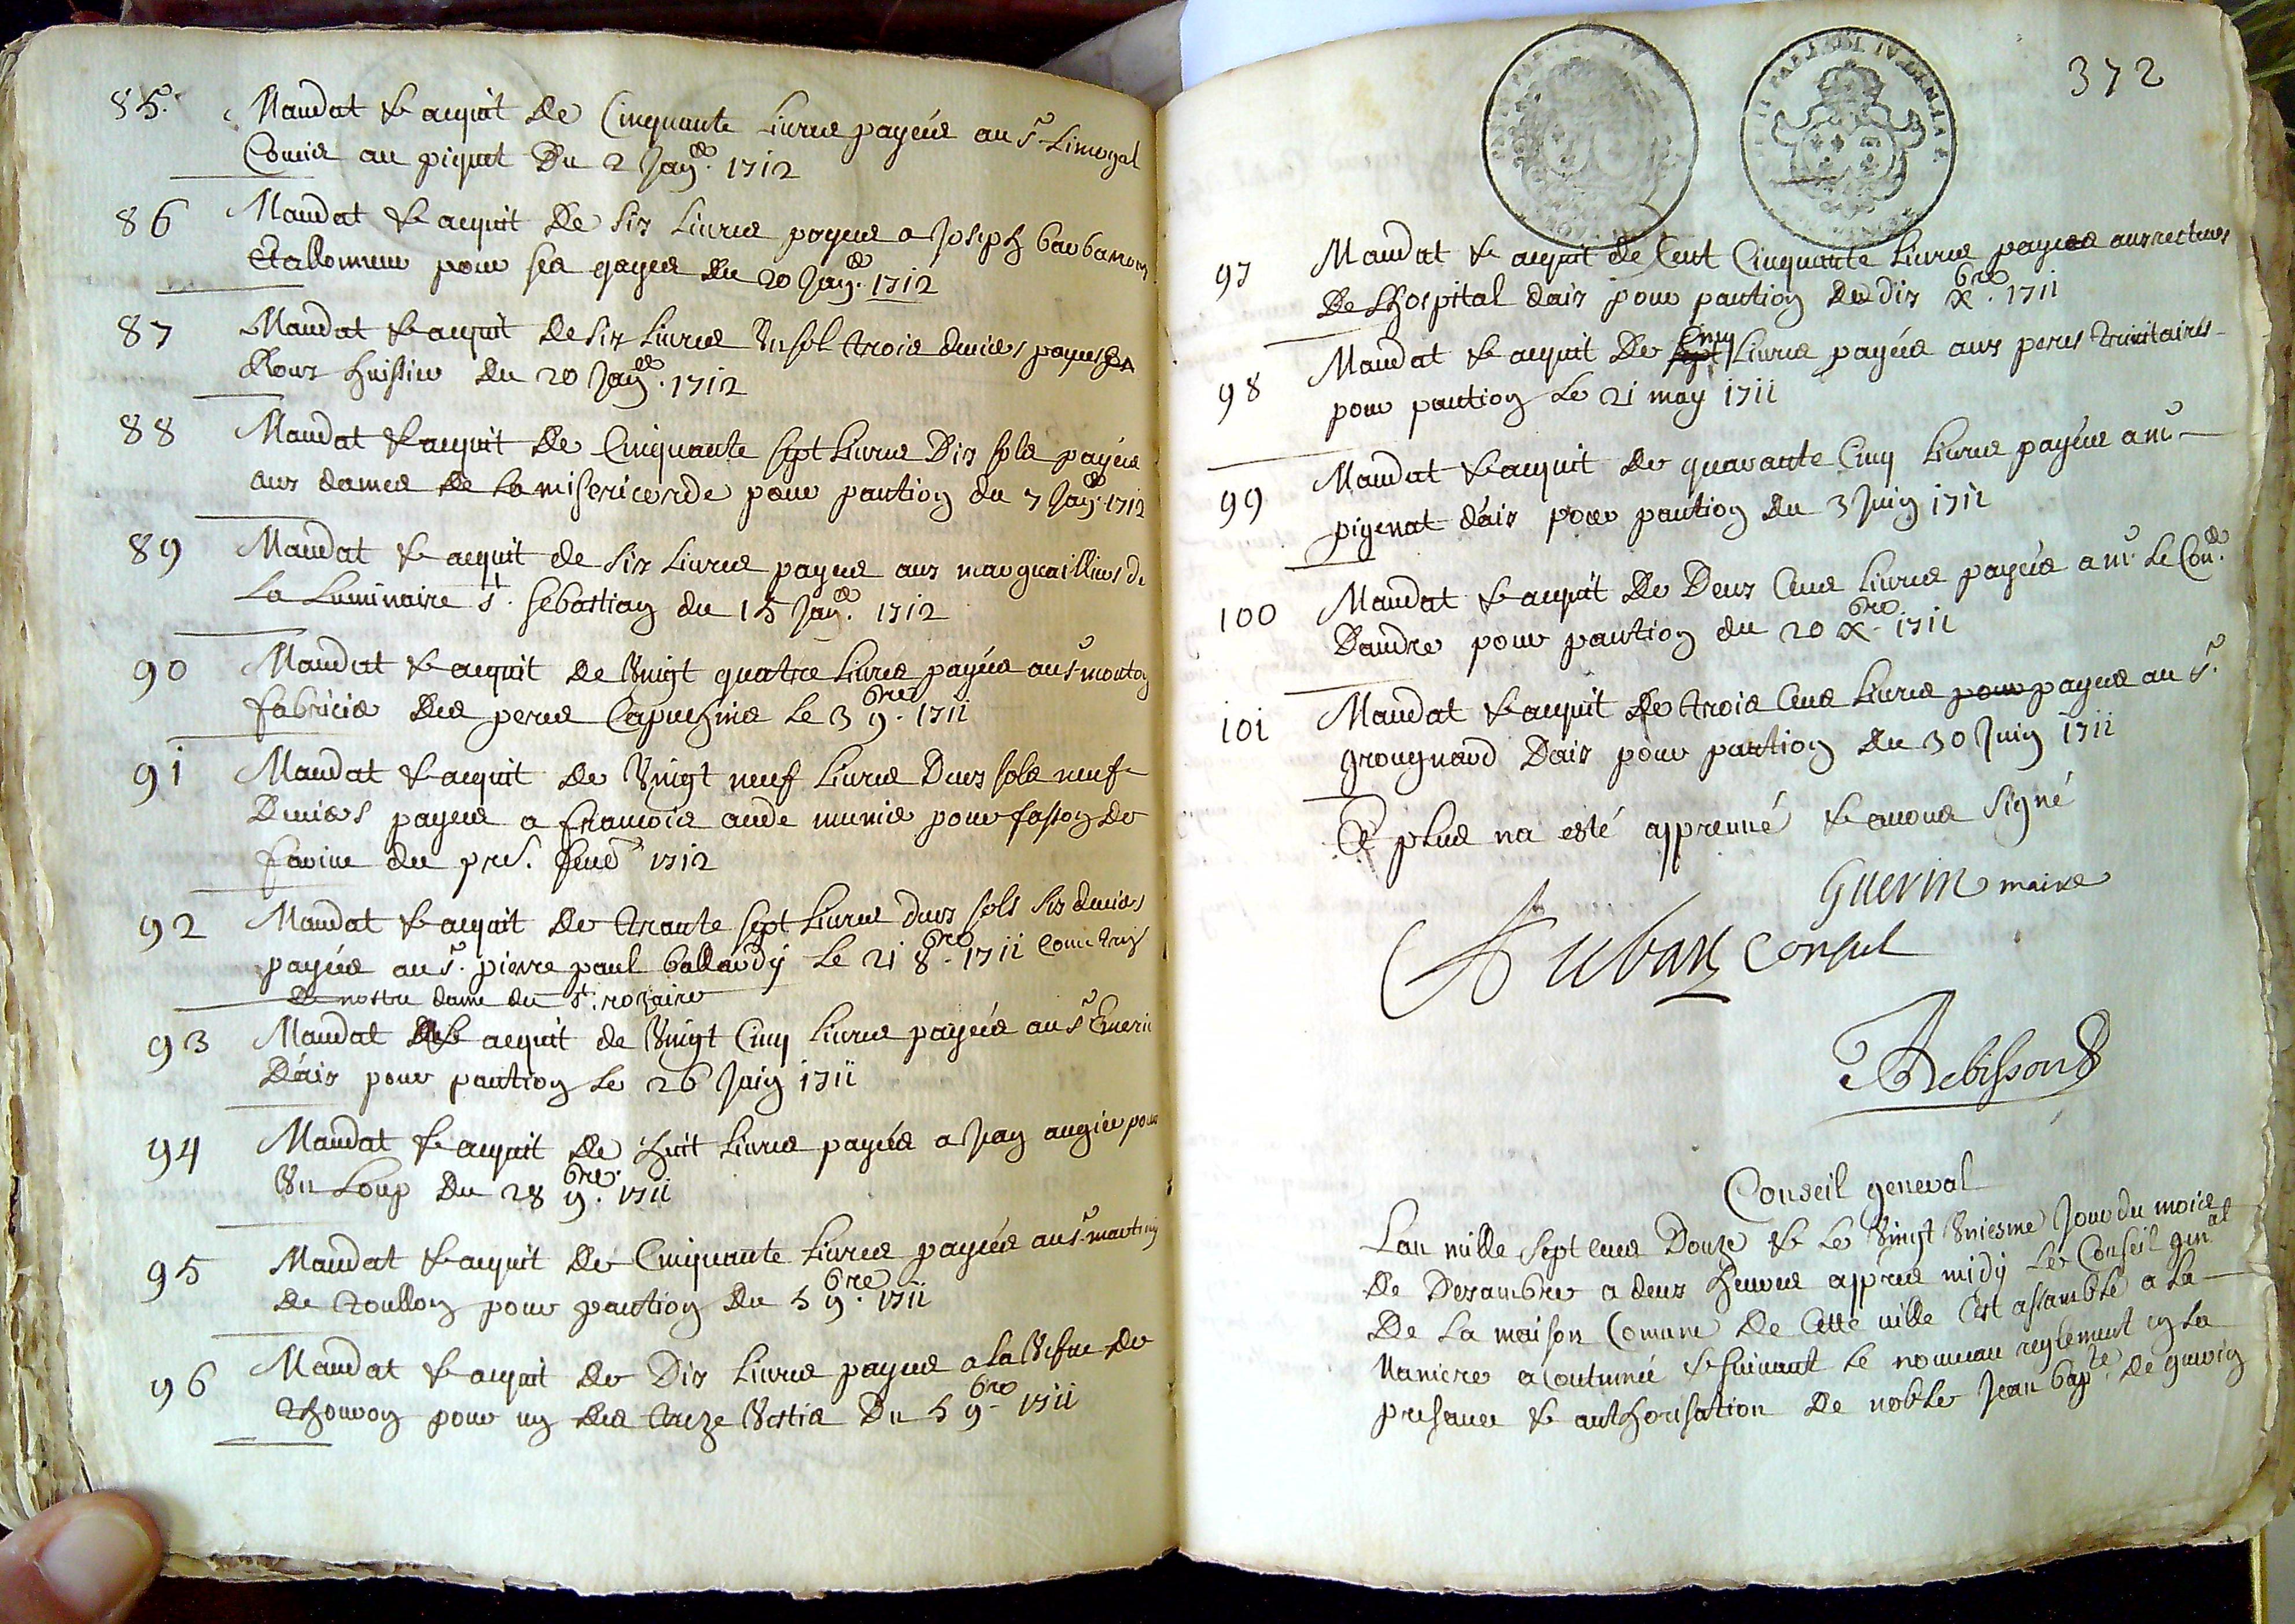 85. Mandat & acquit de Cinquante Livres payées au Sr. Limozal
Comis au piquet Du 2 Janer. 1712
86 Mandat & acquit de six Livres payees a Joseph barbaroux
Etallonneur pour ses gages du 20 Janer. 1712
87 Mandat & acquit de six Livres Un sol trois deniers payes a
Roux huissier du 20 Janer. 1712
88 Mandat & acquit de Cinquante sept Livres Dix sols payées
aux dames de La misericorde pour pantion du 7 Janer. 1712
89 Mandat & acquit de six Livres payees aux marguailliers de
La Luminaire St. sebastian du 15 Janer. 1712
90 Mandat & acquit de Vingt quatre Livres payées au Sr monton
fabricie des peres Capuchins le 3 9bre. 1711
91 Mandat & acquit de Vingt neuf Livres Deux sols neuf
Deniers payees a francois aude munie pour fasson de
farine du pr. feuer 1712
92 Mandat & acquit de trante sept Livres deux sols six deniers
payées au Sr. pierre paul ballardy le 21 8bre. 1711 come
de nostre dame du St. rozaire
93 Mandat & acquit de Vingt Cinq Livres payées au Sr Emeric
D'aix pour pantion le 26 Juin 1711
94 Mandat & acquit de huit Livres payées a Jean augier pour
Un Loup Du 28 9bre. 1711
95 Mandat & acquit de Cinquante Livres payées au Sr martiny
de toullon pour pantion du 5 9bre. 1711
96 Mandat & acquit de Dix Livres payees a la Vefue de
thouron pour un des treze Vestis Du 5 9bre. 1711
372
97 Mandat & acquit de Cent Cinquante Livres payees aux recteurs
de Lhospital daix pour pantion du dix Xbre. 1711
98 Mandat & acquit de Cinq Livres payées aux peres trinitaires
pour pantion le 21 may 1711
99 Mandat & acquit de quarante Cinq Livres payées a mr
pigenat d'aix pour pantion du 3 Juin 1711
100 Mandat & acquit de Deux Cens Livres payées a mr. le Coner.
Dandre pour pantion du 20 Xbre. 1711
101 Mandat & acquit de trois Cens Livres pour payees au Sr.
grougnard Daix pour pantion du 30 Juin 1711
Et plus na esté apprenné & auons signé
Guerin maire
Auban Consul
Rebisson
Conseil general
Lan mille sept cens Douze & le Vingt Vniesme Jour du mois
de Dexambre a deux heures apres midy le Conseil gnal
de La maison Comune de Cette uille Cest assamblé a la
maniere acoutumée & suiuant le nouueau reglement en la
presance & authorisation de noble Jean bapte. de guerin